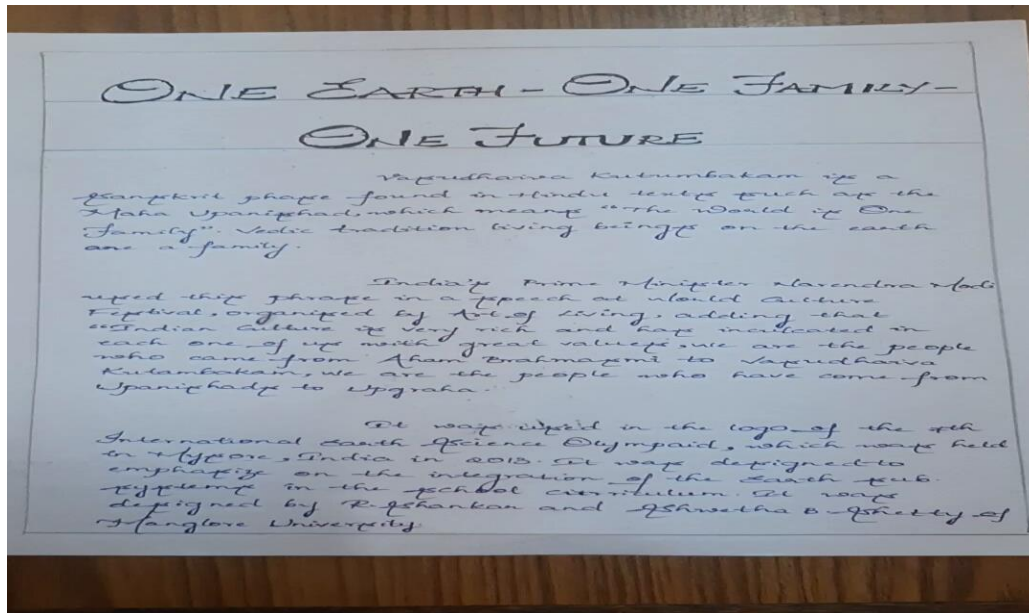 ONE EARTH - ONE FAMILY -
ONE FUTURE
Vasudhaiva Kutumbakam is a
Sanskrit phase found in Hindu texts such as the
Maha Upanishad, which means "The World is One
Family". Vedic tradition living beings on the earth
are a family.
India's Prime Minister Narendra Modi
used this phrase in a speech at World Culture
Festival, organised by Art of Living, adding that
"Indian Culture is very rich and has inculcated in
each one of us with great values, we are the people
who came from Aham Brahmasmi to Vasudhaiva
Kutambakam, we are the people who have come from
Upanishads to Upgraha.
It was used in the logo of the 7th
International Earth Science Olympaid, which was held
in Mysore, India in 2013. It was designed to
emphasize on the integration of the Earth sub.
systems in the school curriculum. It was
designed by R. Shankar and Shwetha B Shetty of
Manglore University.